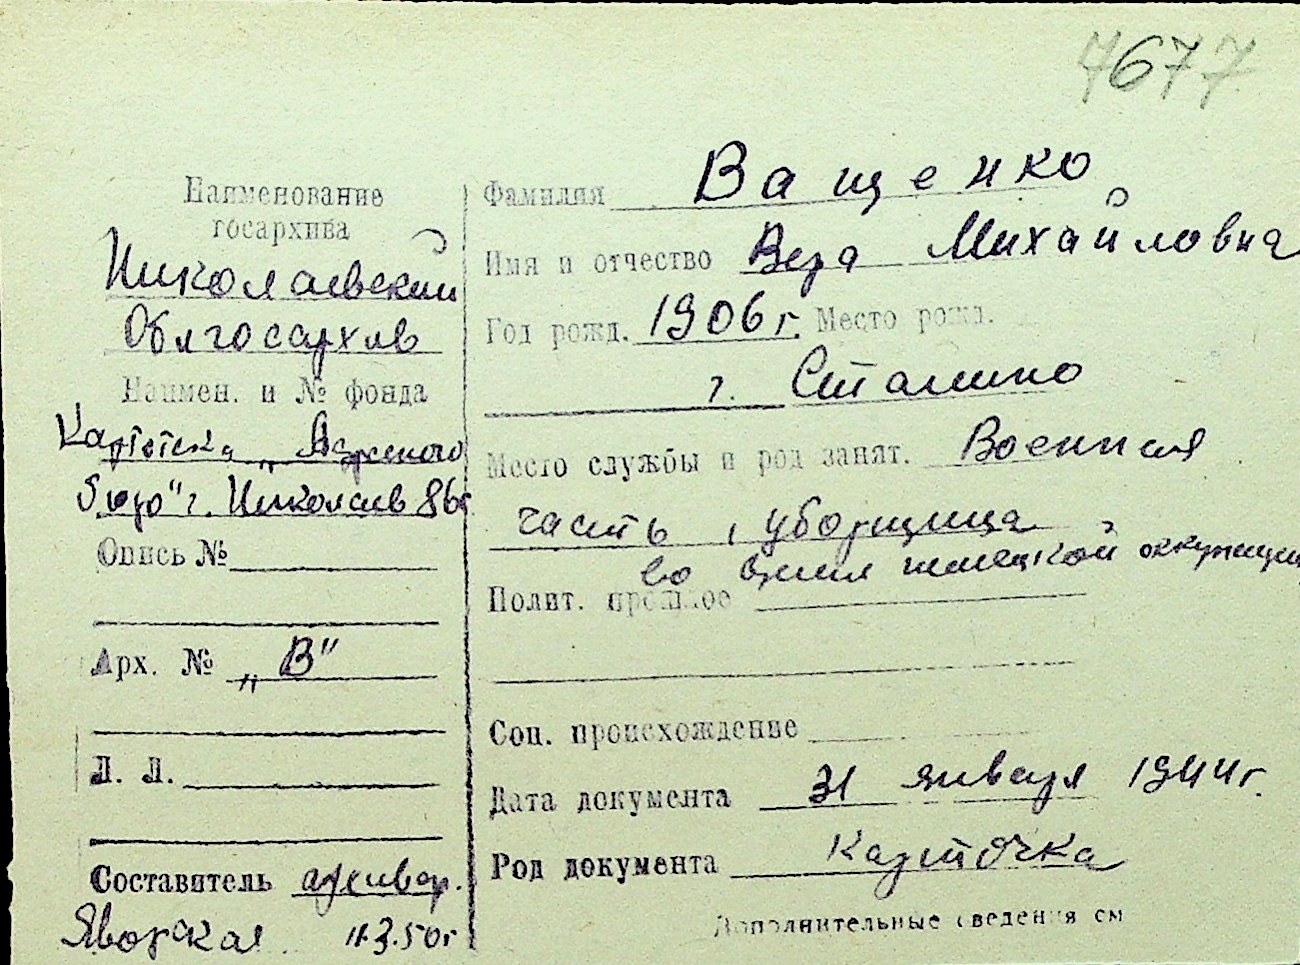 7677
Наименование
госархива
Николаевский
Облгосархив
Наимен. и № фонда
Картотека „Адресного
бюро" г. Николаев
Опись №
Арх. № „В"
Л. Л.
Составитель архивар.
Яворская 11.3.50г
Фамилия Ващенко
Имя и отчество Вера Михайловна
Год рожд. 1906 г. Место рожд.
г. Сталино
Место службы и род занят. Военная
часть, уборщица
во время немецкой оккупации
Полит. прошлое
Соц. происхождение
Дата документа 31 января 1944г.
Род документа Карточка
Дополнительные сведения см